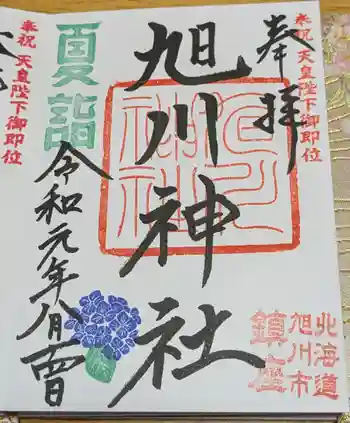 奉祝 天皇陛下御即位
奉拝
旭川神社
夏詣
令和元年八月四日
奉祝 天皇陛下御即位
北海道
旭川市
鎮座